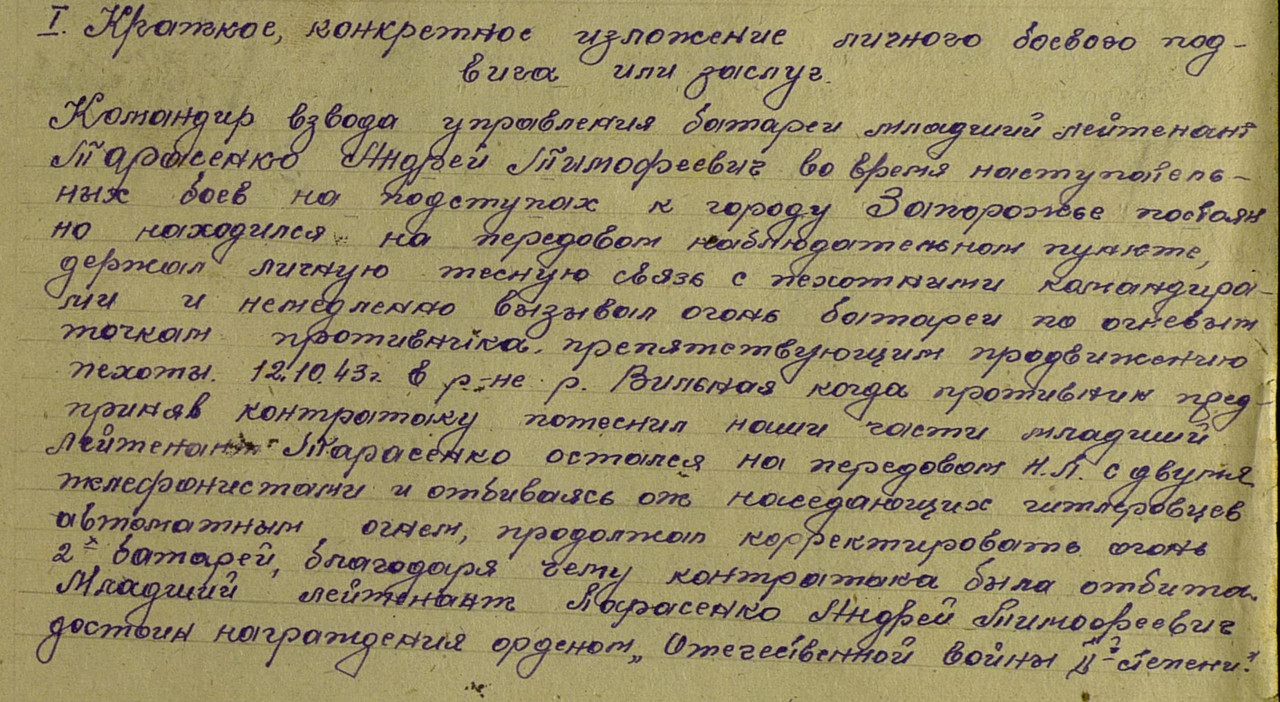 I. Краткое, конкретное изложение личного боевого под-
вига или заслуг.
Командир взвода управления батареи младший лейтенант
Тарасенко Андрей Тимофеевич во время наступатель-
ных боев на подступах к городу Запорожье постоян
но находился на передовом наблюдательном пункте,
держал личную тесную связь с пехотными командира-
ми и немедленно вызывал огонь батареи по огневым
точкам противника, препятствующим продвижению
пехоты. 12.10.43г. в р-не р. Вильная когда противник пред-
приняв контратаку потеснил наши части младший
лейтенант Тарасенко остался на передовом Н.П. с двумя
телефонистами и отбиваясь от наседающих гитлеровцев
автоматным огнем, продолжал корректировать огонь
2х батарей, благодаря чему контратака была отбита.
Младший лейтенант Тарасенко Андрей Тимофеевич
достоин награждения орденом „Отечественной войны II-й степени".